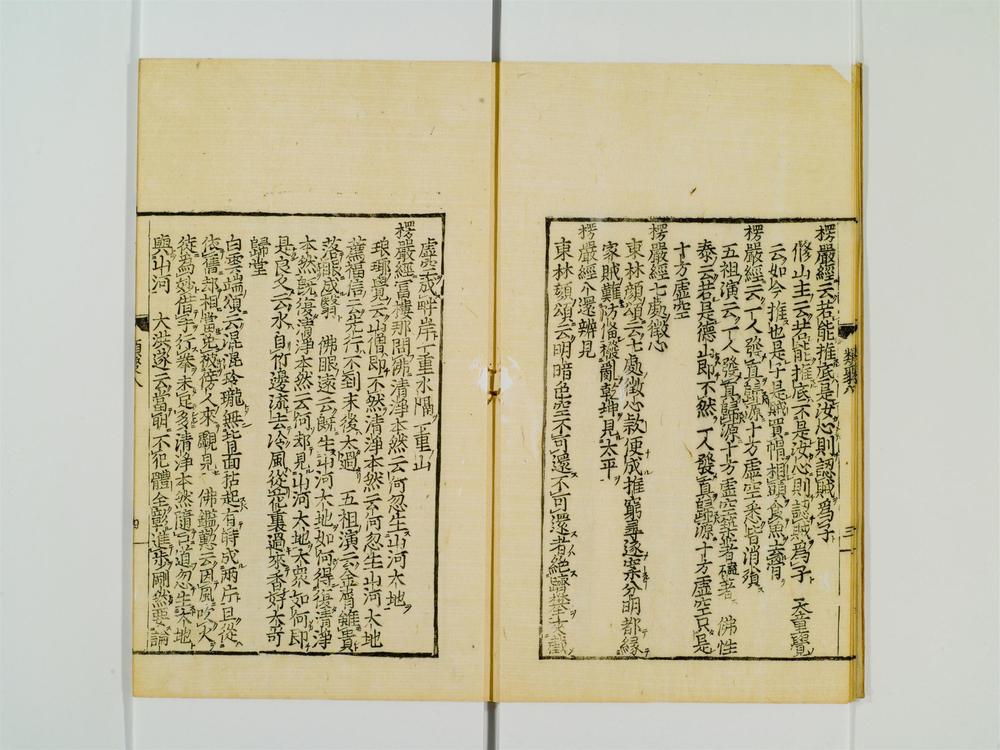 楞嚴經云若能推底是汝心則認賊爲子
脩山主云若能推底不是汝心則認賊爲子 天童覺
云如今推也是子是賊買帽相頭食魚去骨
楞嚴經云一人發眞歸源十方虛空悉皆消殞
五祖演云一人發眞歸源十方虛空築著磕著 佛性
泰云若是德山即不然一人發眞歸源十方虛空只是
十方虛空
楞嚴經七處徵心
東林顔頌云七處徵心欵便成推窮尋逐案分明都緣
家賊難防備撥亂乾坤見太平
楞嚴經八還辨見
東林頌云明暗色空不可還不可還者絶
虛空成畔岸一重水隔一重山
楞嚴經富樓那問佛清淨本然云何忽生山河大地
琅瑘覺云山僧即不然清淨本然云何忽生山河大地
薦福信云先行不到末後太過 五祖演云金屑雖貴
落眼成翳 佛眼遠云旣生山河大地如何得復清淨
本然旣復清淨本然云何却見山河大地大衆如何即
是良久云水自竹邊流去冷風從花裏過來香好大哥
歸堂
白雲端頌云混混玲瓏無背面拈起有時成兩片且從
依舊却相當免被傍人來覷見 佛鑑懃云因風吹火
徒爲妙借手行拳未足多清淨本然隨口道忽生大地
與山河 大洪遂云當明不犯體全彰進步剛然要論
類聚八
三
四